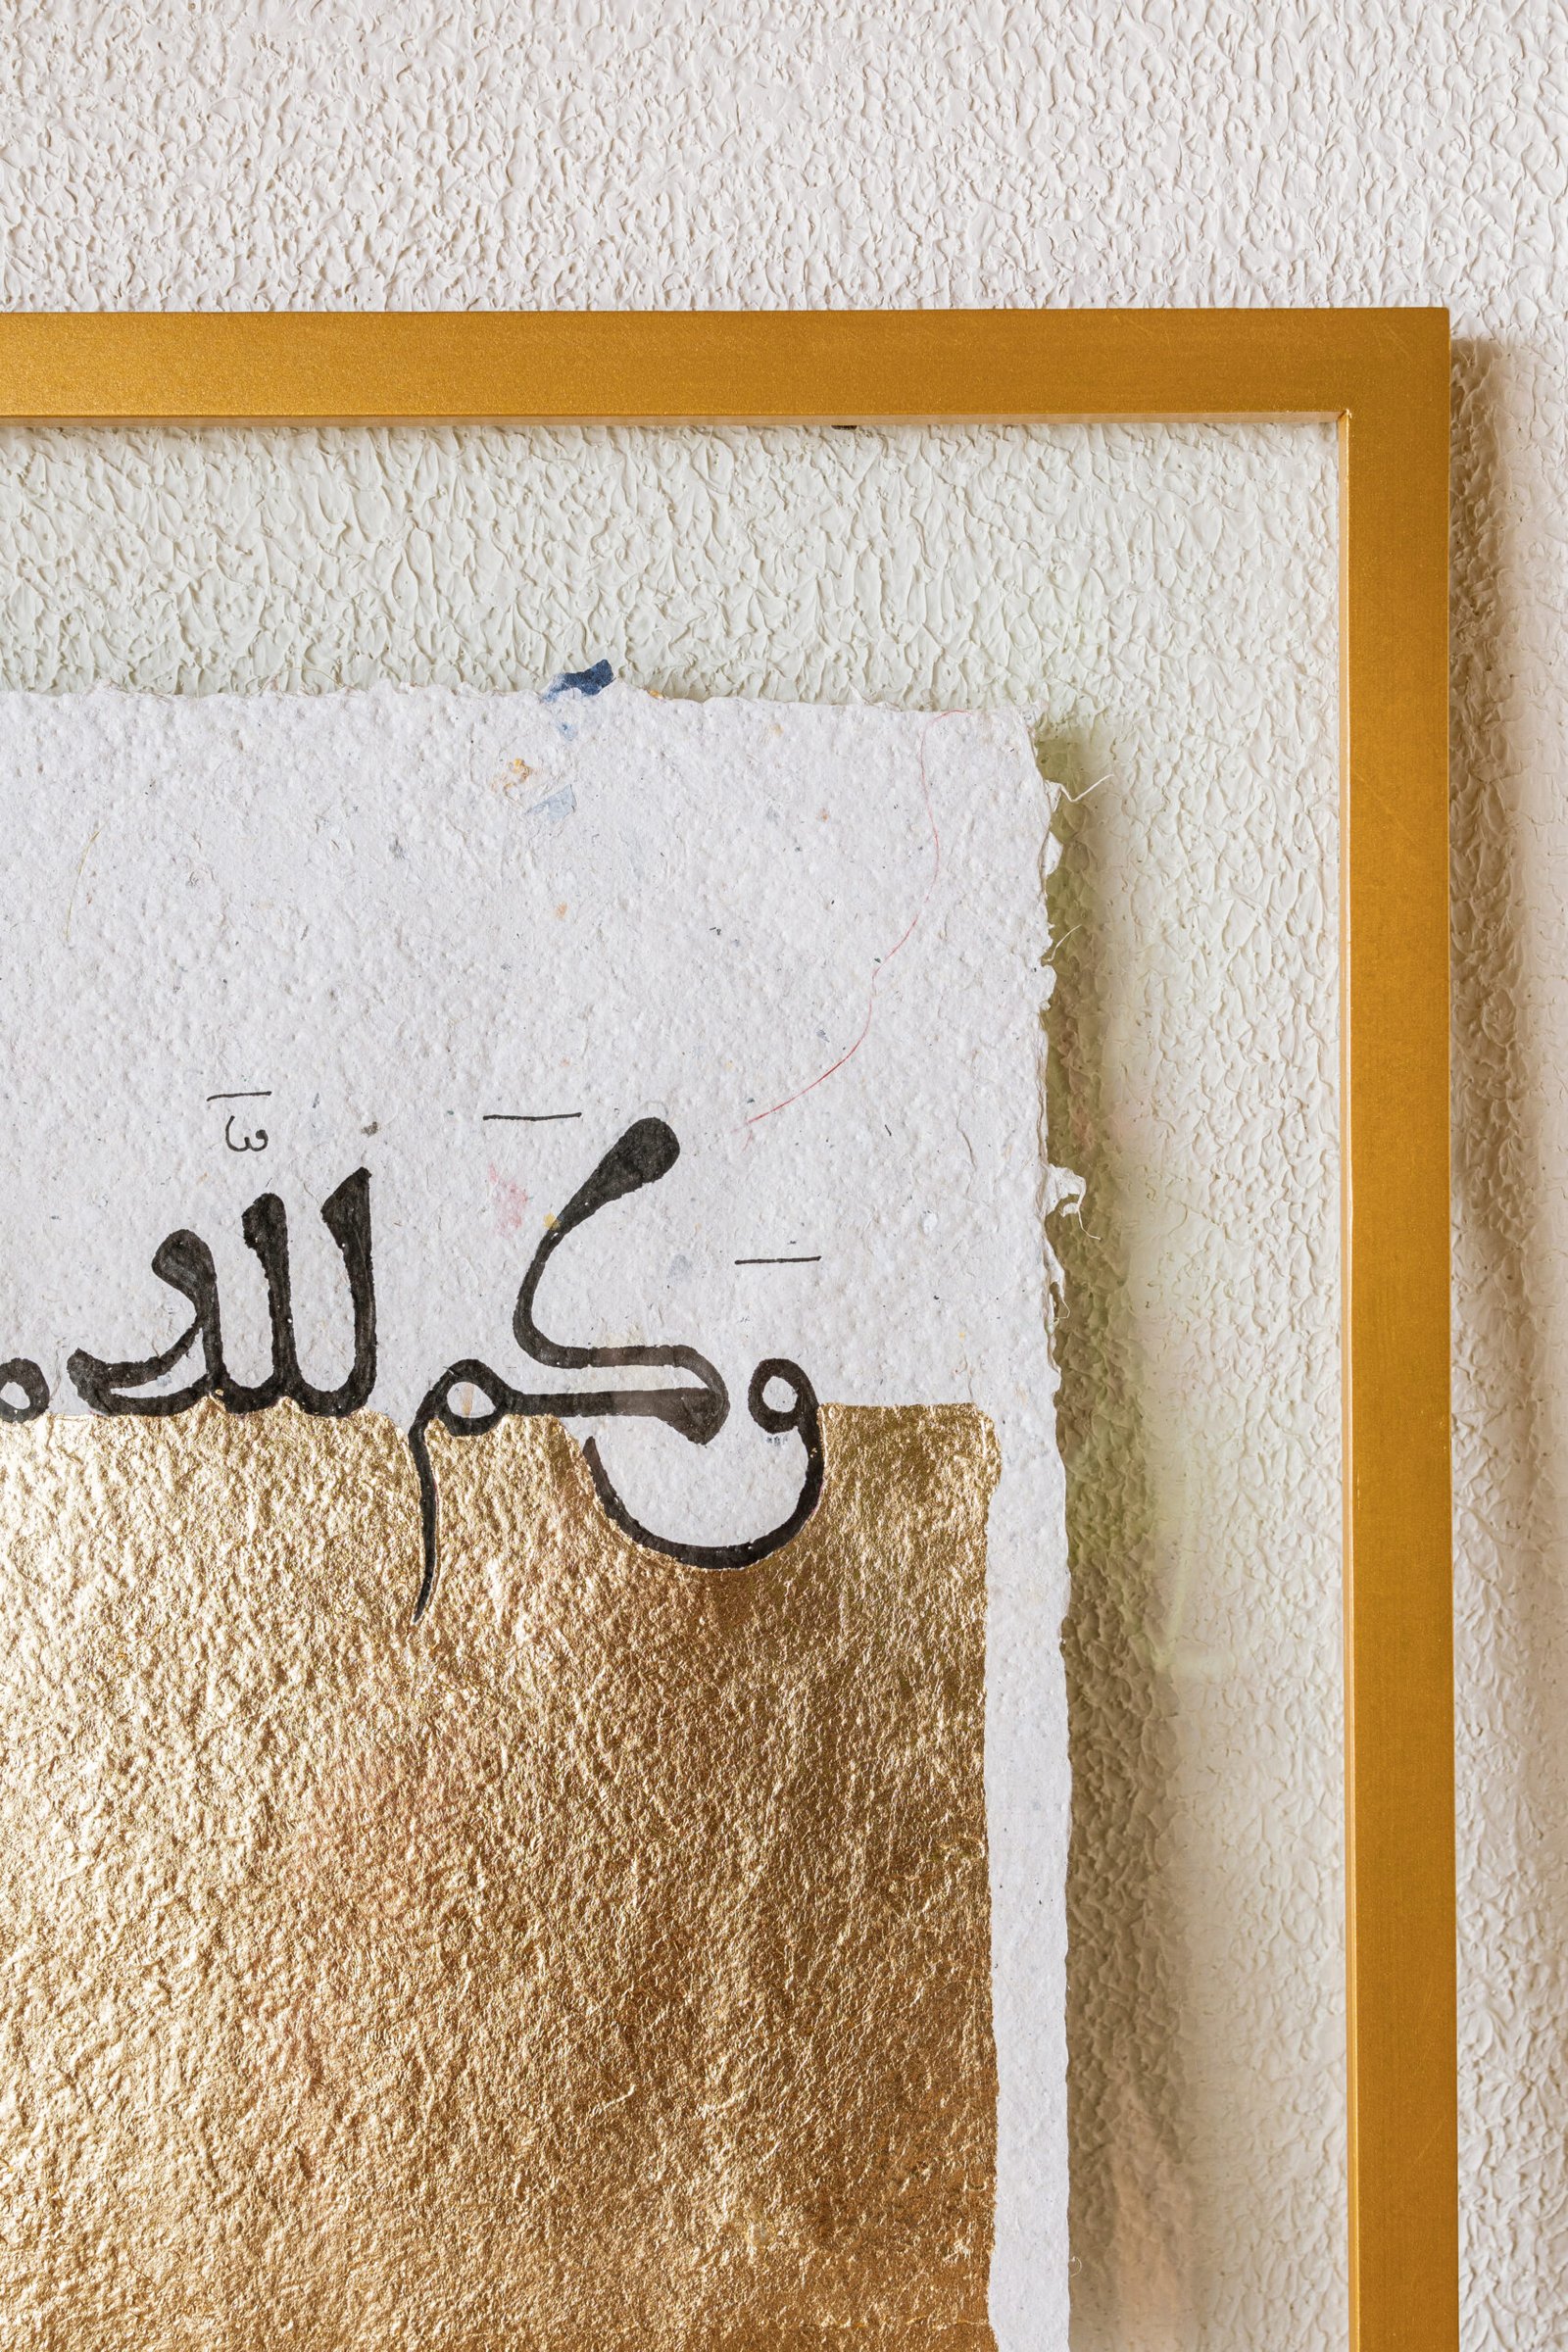 وَكَم لله